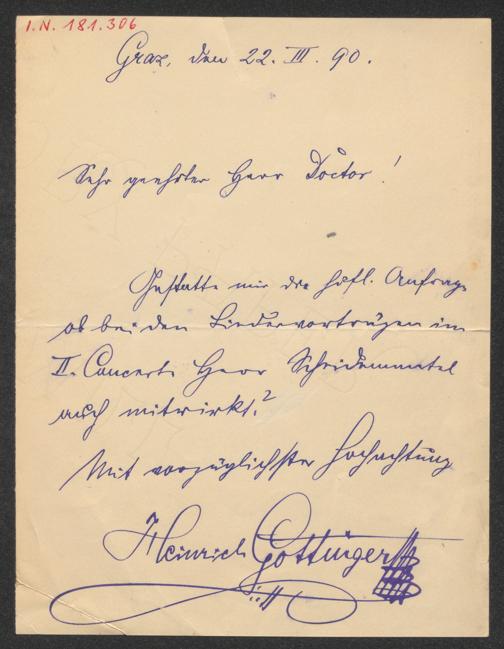 I.N. 181.306
Graz, den 22. III. 90.
Sehr geehrter Herr Doctor!
Gestatte mir die höfl. Anfrage
ob bei den Liedervorträgen im
II. Concerte Herr Scheidemantel
auch mitwirkt?
Mit vorzüglichster Hochachtung
Heinrich Gottinger